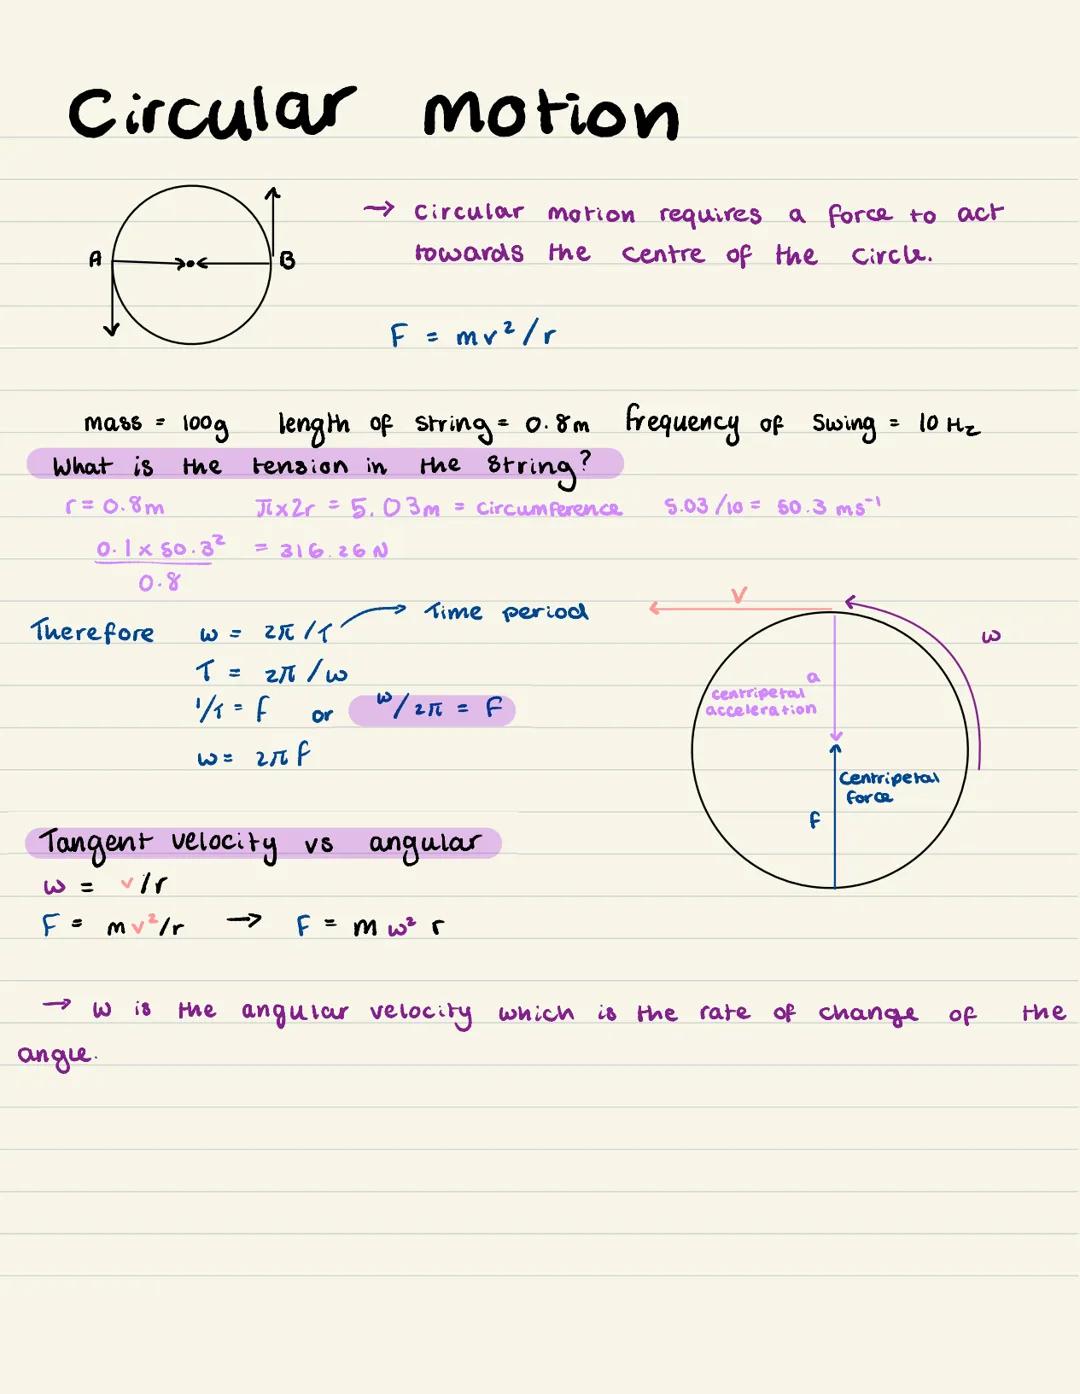 Circular motion
A B
→ Circular motion requires a force to act
towards the centre of the circle.
F = mv²/r
mass = 100g length of string = 0.8m frequency of swing = 10 Hz
What is the tension in the string?
r = 0.8m π×2r = 5.03m = circumference 5.03/10 = 50.3 ms⁻¹
0.1 × 50.3² = 316.26 N
0.8
Therefore ω = 2π/T → Time period
T = 2π/ω
1/T = f or ω/2π = F
ω = 2πf
v
ω
a
centripetal
acceleration
Centripetal
force
F
Tangent velocity vs angular
ω = v/r
F = mv²/r → F = m ω² r
→ ω is the angular velocity which is the rate of change of the
angle.